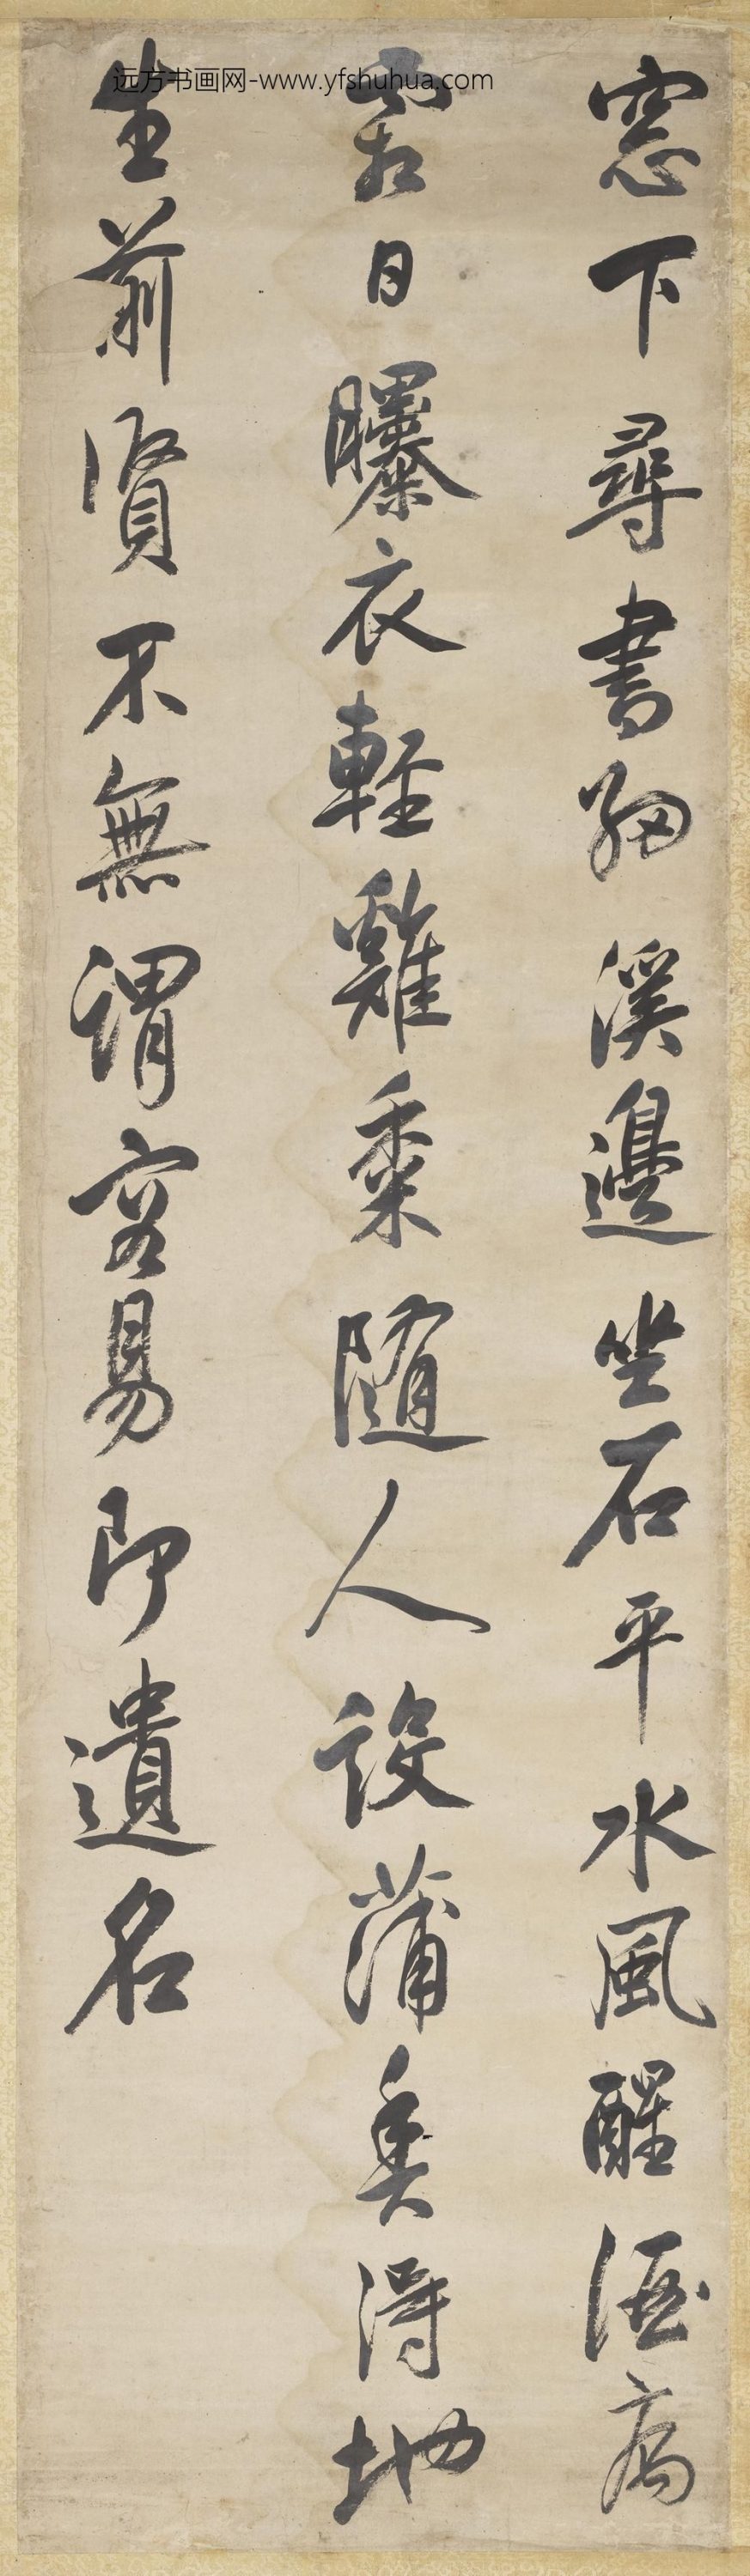 远方书画网-www.yfshuhua.com
窓下尋書細溪邊坐石平水風醒酒病
霜日曝衣輕雞黍隨人設蒲魚得地
生前賢不無謂容易即遺名